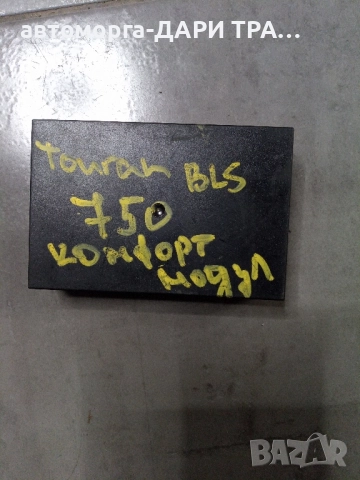 автоморга-ДАРИ ТРА...
Touran BLS
750
комфорт
модул
BAZAR